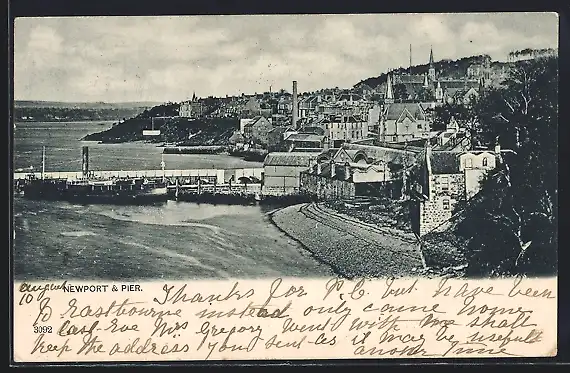 NEWPORT & PIER.
August
10
3092
Thanks for P.C. but have been
to Eastbourne instead only came home
last Eve Mrs Gregory went with me shall
keep the address you sent as it may be useful
another time